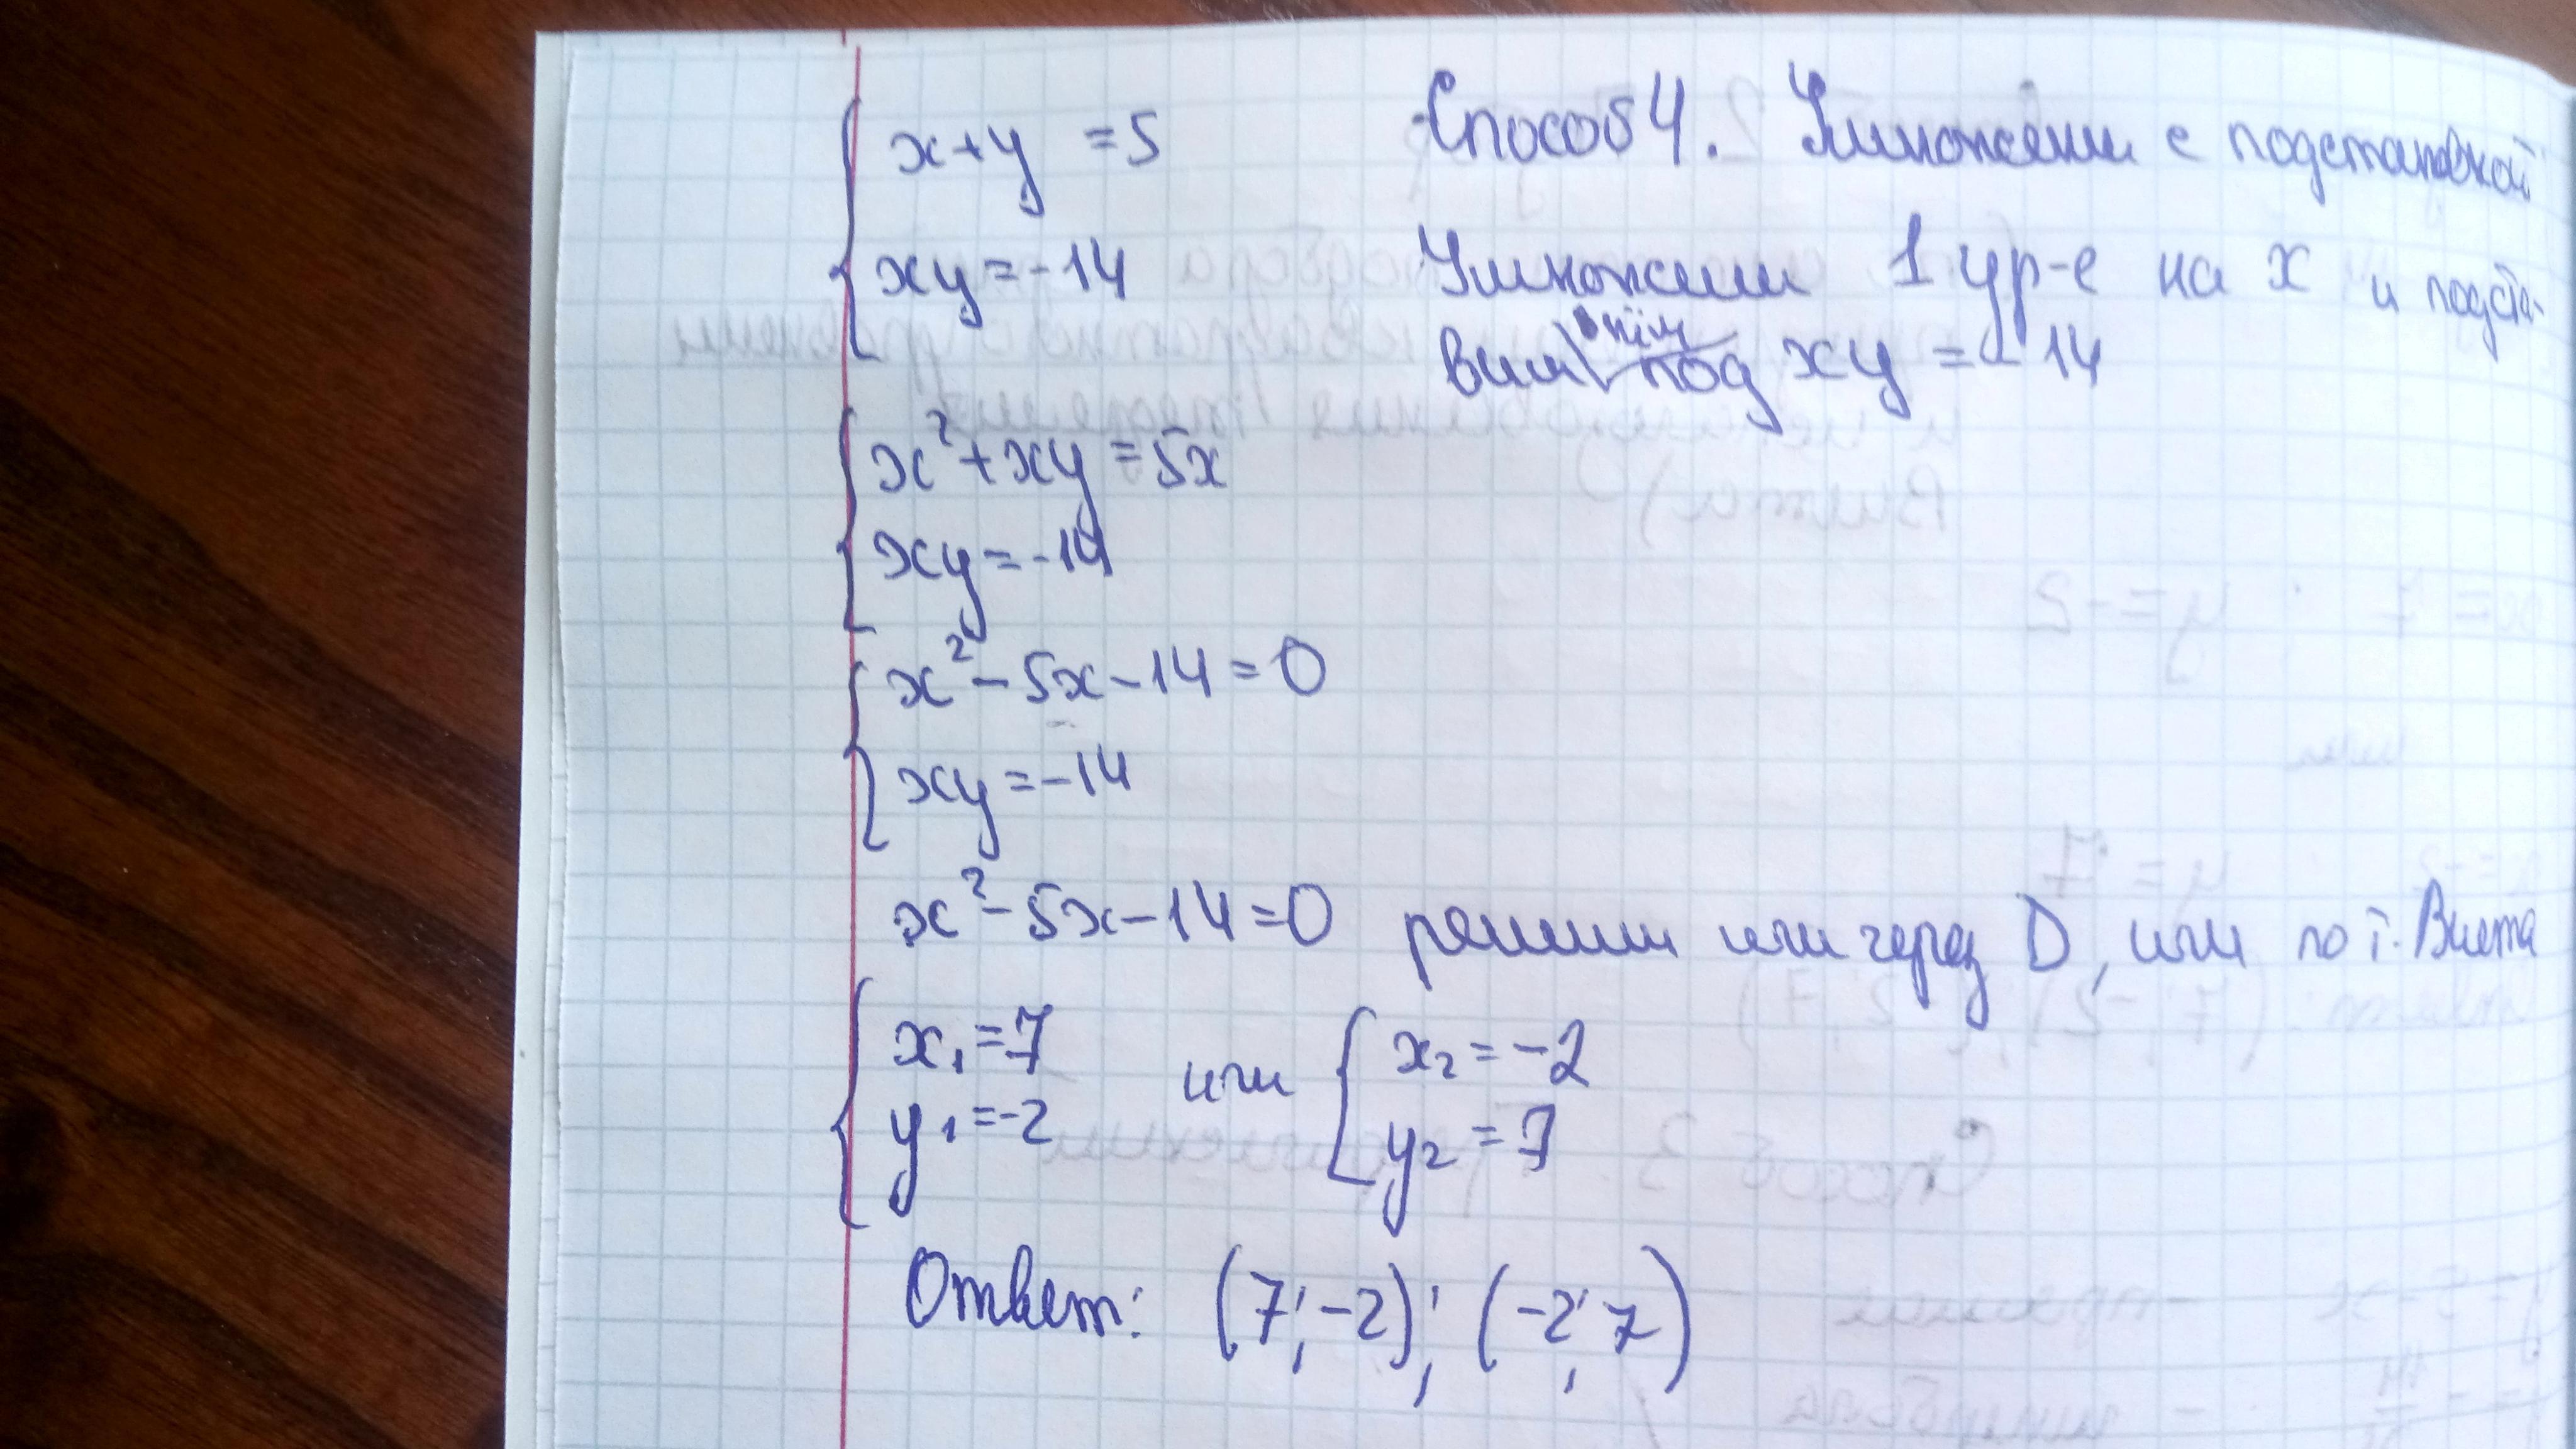 x+y = 5 Способ 4. Умножение с подстановкой
xy = -14 Умножим 1 ур-е на x и подста-
вим под xy = -14
x²+xy = 5x
xy = -14
x² - 5x - 14 = 0
xy = -14
x² - 5x - 14 = 0 решим или через D, или по т. Виета
x₁ = 7 или x₂ = -2
y₁ = -2 y₂ = 7
Ответ: (7; -2); (-2; 7)